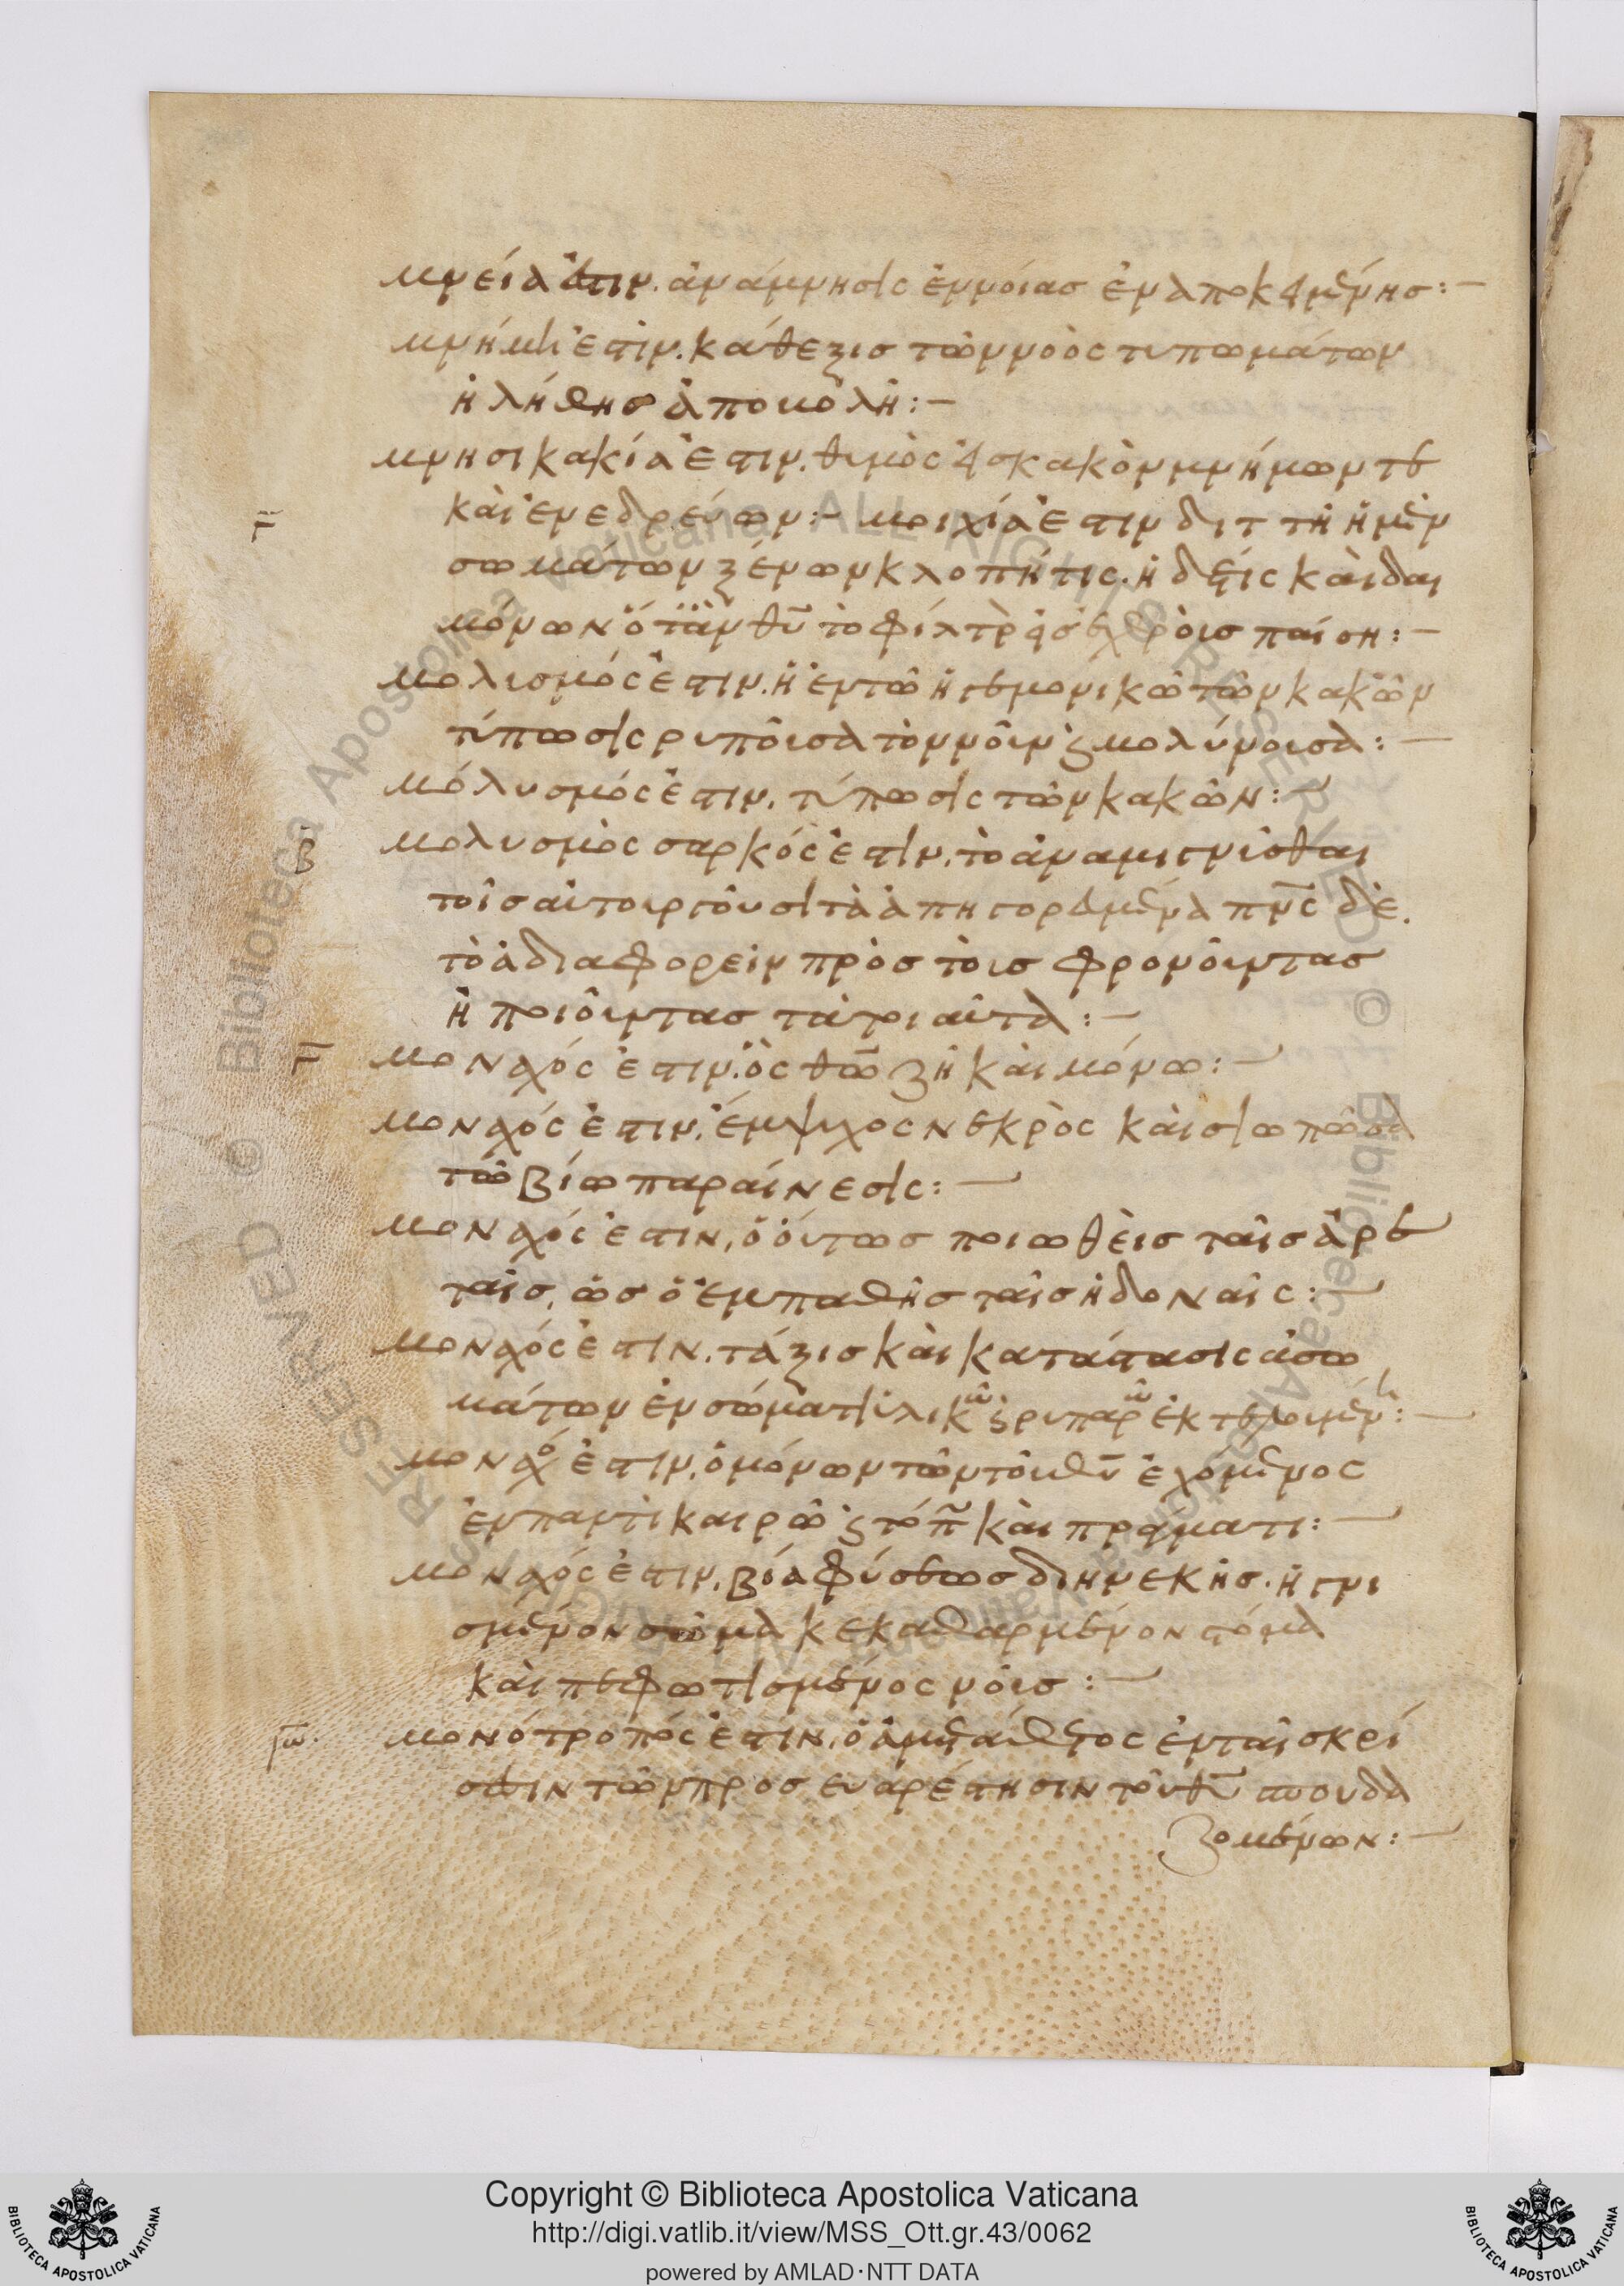 μνεία ἐστιν. ἀνάμνησις ἐννοίας ἐναποκειμένης :-
μνήμη ἐστιν. κάθεξις τῶν νοὸς τυπωμάτων
ἢ λήθης ἀποβολὴ :-
μνησικακία ἐστιν. θυμὸς εἰς κακὸν μνημονευτε
καὶ ἐνεδρεύων :- μοιχία ἐστιν
σωμάτων ξένων κλοπή τις. ἢ
μόνων ὅταν θυ το φίλτρ παίση :-
μολυσμός ἐστιν. ἡ ἐν τῶ ἡγεμονικῶ τῶν κακῶν
τύπωσις ρυποῦσα τὸν νοῦν ϗ μολύνουσα :-
μόλυσμός ἐστιν. τύπωσις τῶν κακῶν :-
β μολυσμὸς σαρκός ἐστιν. τὸ ἀναμιγνύσθαι
τοῖς αὐτουργοῦσι τὰ ἀπηγορευμένα πνς δὲ.
τὸ ἀδιαφορεῖν πρὸς τοὺς φρονοῦντας
ἢ ποιοῦντας τὰ τοιαῦτα :-
μοναχός ἐστιν. ὃς θω ζῆ καὶ μόνω :-
μοναχός ἐστιν. ἔμψυχος νεκρὸς καὶ σιωπῶσα
τῶ βίω παραίνεσις :-
μοναχός ἐστιν. ὁ οὕτως ποιωθεὶς ταῖς ἀρε
ταῖς, ὡς ὁ ἐμπαθὴς ταῖς ἡδοναῖς :-
μοναχός ἐστιν. τάξις καὶ κατάστασις ἀσω
μάτων ἐν σώματι ὑλικῶ ϗ ρυπαρῶ ἐκτελουμένη :-
μοναχὸ ἐστιν. ὁ μόνων τῶν τοῦ θυ ἐχόμενος
ἐν παντὶ καιρῶ ϗ τόπ καὶ πράγματι :-
μοναχός ἐστιν. βία φύσεως διηνεκής. ἡγνι
σμένον σῶμα κεκαθαρμένον στόμα
καὶ πεφωτισμένος νοῦς :-
μονότροπός ἐστιν. ὁ ἐν ταῖς κρί
σεσιν τῶν πρὸς εὐαρέστησιν τοῦ θυ σπουδα
ζομένων :-
Copyright © Biblioteca Apostolica Vaticana
http://digi.vatlib.it/view/MSS_Ott.gr.43/0062
powered by AMLAD·NTT DATA